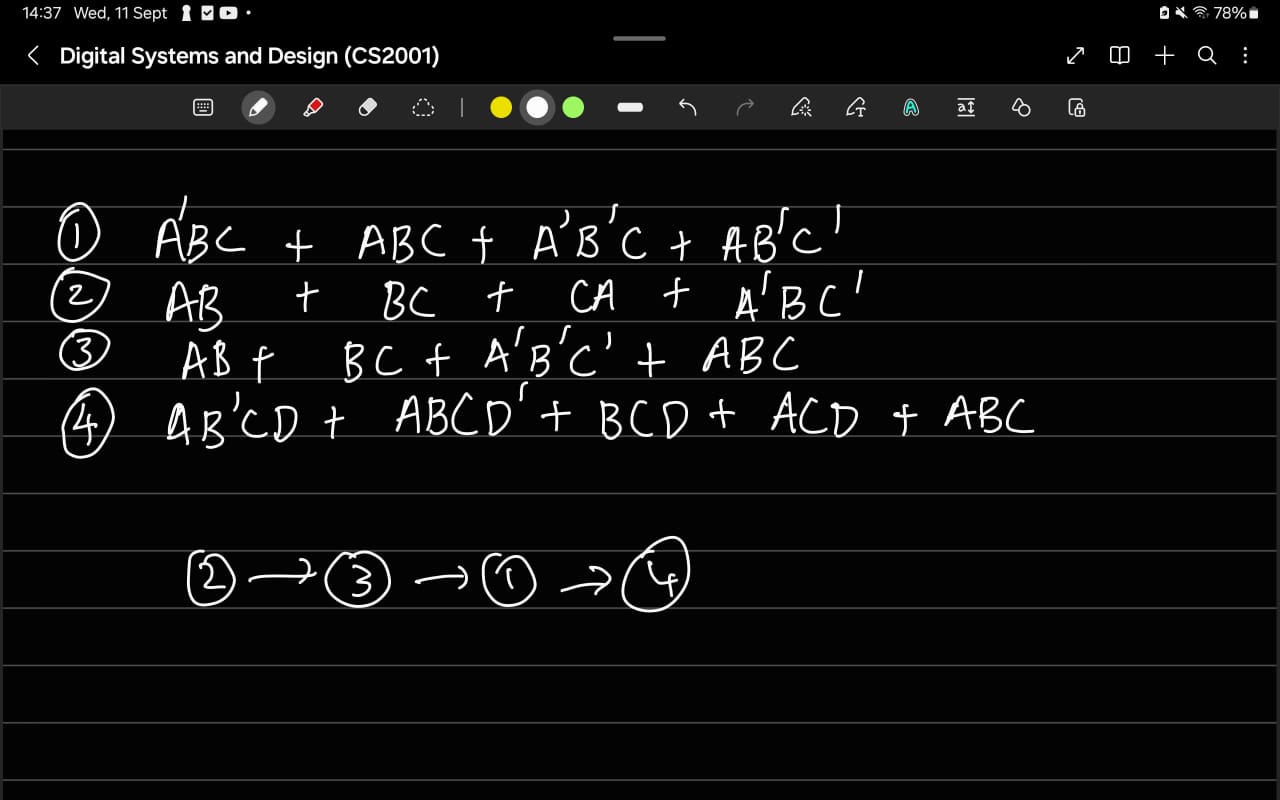 14:37 Wed, 11 Sept 78%
Digital Systems and Design (CS2001)
① A'BC + ABC + A'B'C + AB'C'
② AB + BC + CA + A'BC'
③ AB + BC + A'B'C' + ABC
④ AB'CD + ABCD' + BCD + ACD + ABC
② → ③ → ① → ④